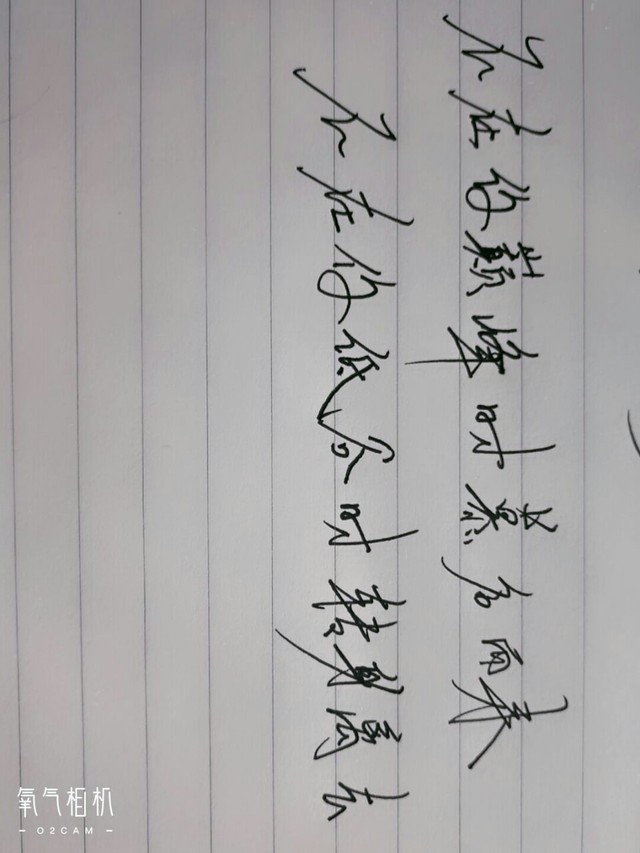 不在你巅峰时慕名而来
不在你低谷时转身离去
氧气相机
- O2CAM -